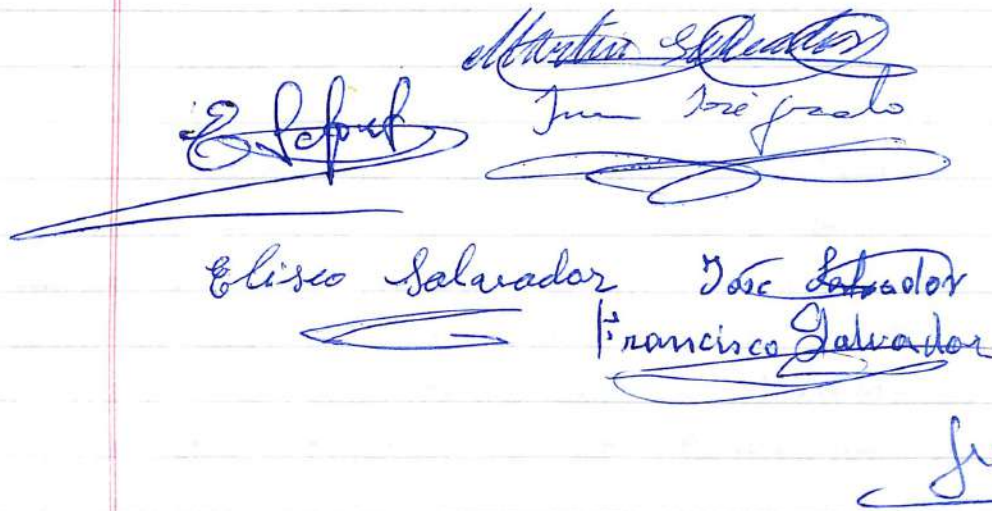 Martin Salvador
Juan José
E.
Eliseo Salvador José Salvador
Francisco Salvador